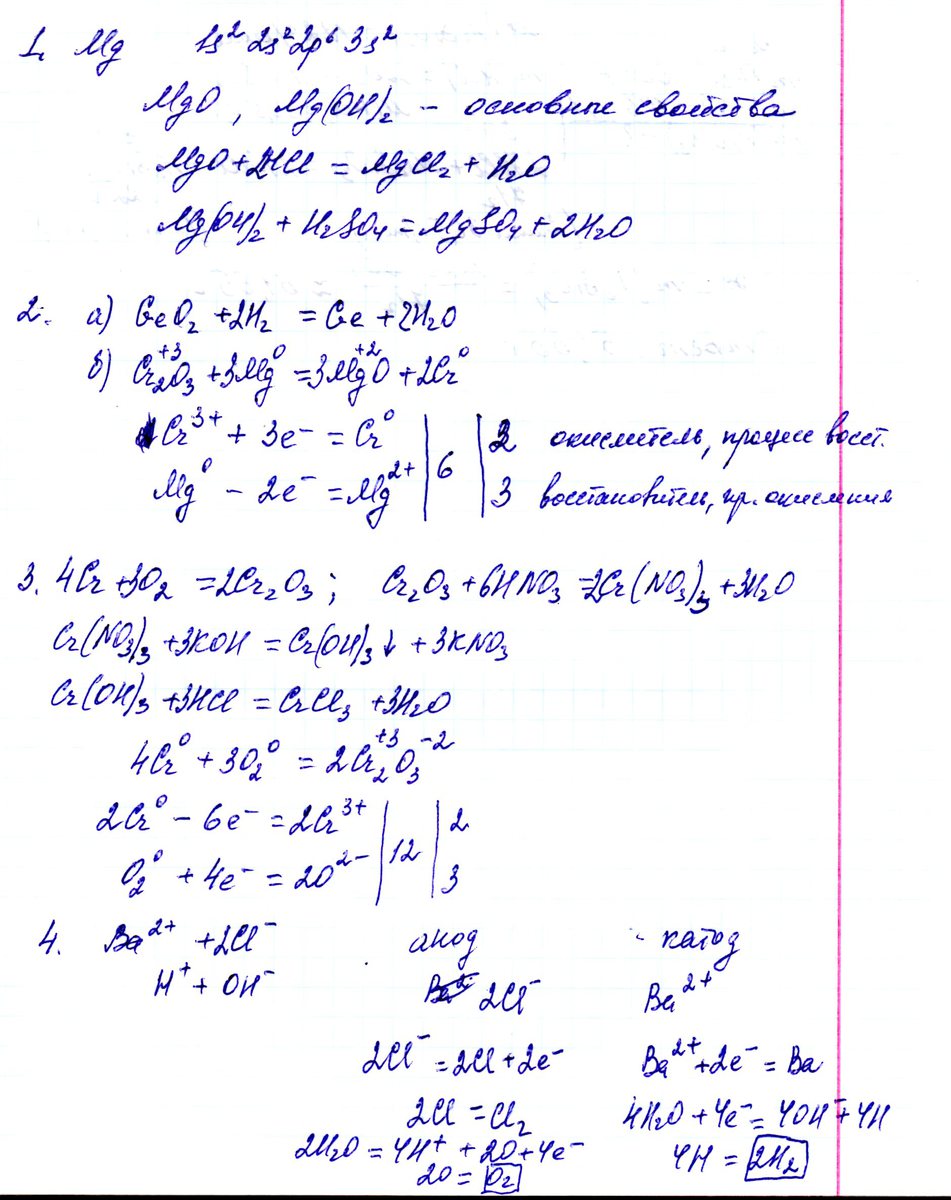 1. Mg 1s² 2s² 2p⁶ 3s²
MgO, Mg(OH)₂ – основные свойства
MgO + 2HCl = MgCl₂ + H₂O
Mg(OH)₂ + H₂SO₄ = MgSO₄ + 2H₂O
2. а) GeO₂ + 2H₂ = Ge + 2H₂O
б) Cr₂⁺³O₃ + 3Mg⁰ = 3Mg⁺²O + 2Cr⁰
Cr³⁺ + 3e⁻ = Cr⁰ | 6 | 2 окислитель, процесс восст.
Mg⁰ – 2e⁻ = Mg²⁺ | 3 восстановитель, пр. окисления
3. 4Cr + 3O₂ = 2Cr₂O₃; Cr₂O₃ + 6HNO₃ = 2Cr(NO₃)₃ + 3H₂O
Cr(NO₃)₃ + 3KOH = Cr(OH)₃↓ + 3KNO₃
Cr(OH)₃ + 3HCl = CrCl₃ + 3H₂O
4Cr⁰ + 3O₂⁰ = 2Cr₂⁺³O₃⁻²
2Cr⁰ – 6e⁻ = 2Cr³⁺ | 12 | 2
O₂⁰ + 4e⁻ = 2O²⁻ | 3
4. Ba²⁺ + 2Cl⁻ анод - катод
H⁺ + OH⁻ 2Cl⁻ Ba²⁺
2Cl⁻ = 2Cl + 2e⁻ Ba²⁺ + 2e⁻ = Ba
2Cl = Cl₂ 4H₂O + 4e⁻ = 4OH⁻ + 4H
2H₂O = 4H⁺ + 2O + 4e⁻ 4H = 2H₂
2O = O₂